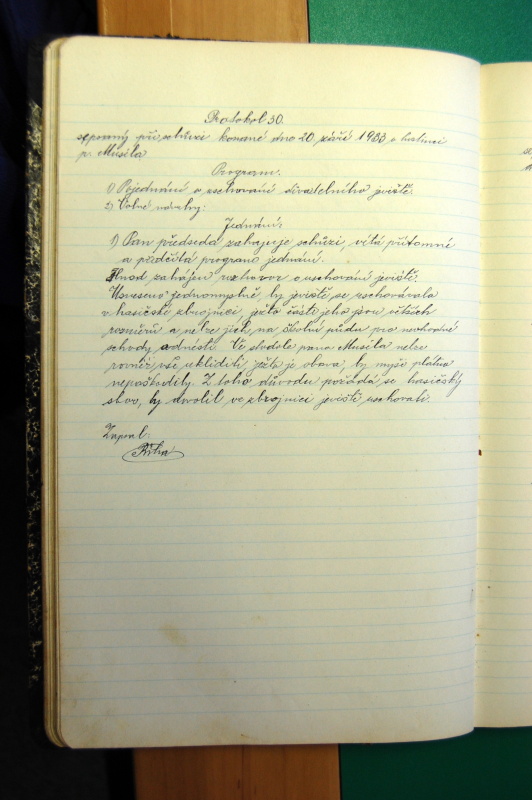 Protokol 30.
sepsaný při schůzi konané dne 20. září 1933 v hostinci
p. Musila
Program.
1) Pojednání o uschování divadelního jeviště.
2) Volné návrhy:
Jednání:
1) Pan předseda zahajuje schůzi, vítá přítomné
a předčítá program jednání.
Ihned zahájen rozhovor o uschování jeviště.
Usneseno jednomyslně, by jeviště se uschovávalo
v hasičské zbrojnici, ježto části jeho jsou větších
rozměrů a nelze jich na školní půdu pro nevhodné
schody odnésti. Ve stodole pana Musila nelze
rovněž vše uklidili ježto je obava, by myši plátna
nepoškodily. Z toho důvodu požádá se hasičský
sbor, by dovolil ve zbrojnici jeviště uschovati.
Zapsal:
Říha